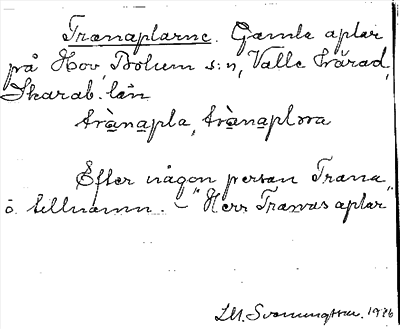 Tranaplarne. Gamle aplar
på Hov, Bolum s:n, Valle härad,
Skarab. län
tràna̲pla, tràna̲plɔra
Efter någon person Trana
ö. tillnamn. – "Herr Tranas aplar"
1926